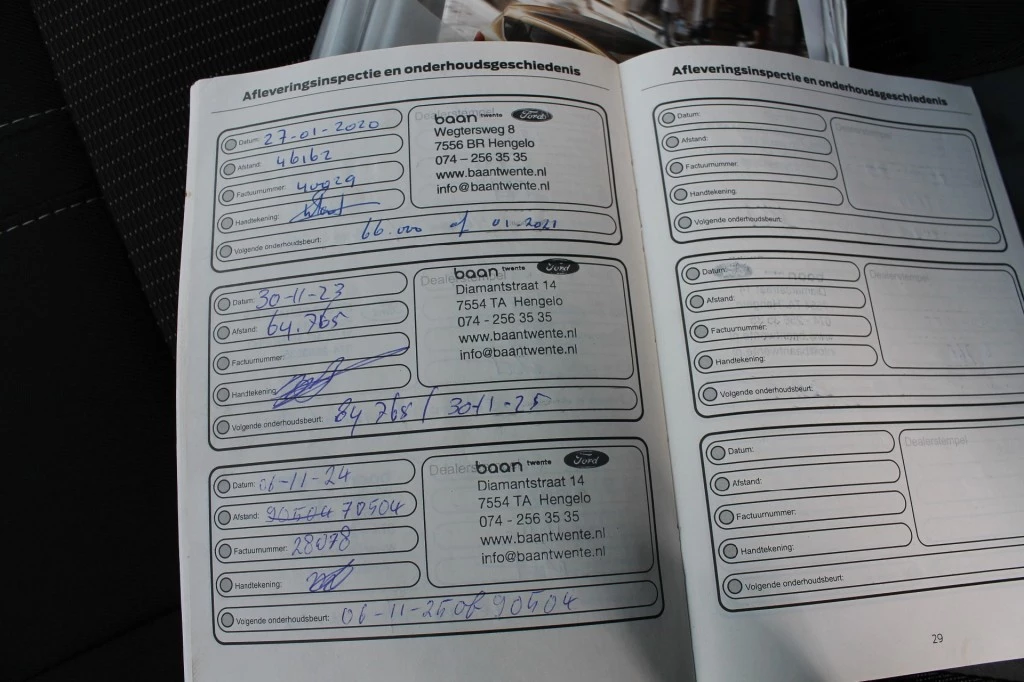 Afleveringsinspectie en onderhoudsgeschiedenis
Datum: 27-01-2020
Afstand: 46162
Factuurnummer: 40929
Handtekening:
Volgende onderhoudsbeurt: 66.000 of 01-2021
Dealerstempel
baan twente Ford
Wegtersweg 8
7556 BR Hengelo
074 – 256 35 35
www.baantwente.nl
info@baantwente.nl
Datum: 30-11-23
Afstand: 64.765
Factuurnummer:
Handtekening:
Volgende onderhoudsbeurt: 84 765 / 30-11-25
Dealerstempel
baan twente Ford
Diamantstraat 14
7554 TA Hengelo
074 - 256 35 35
www.baantwente.nl
info@baantwente.nl
Datum: 06-11-24
Afstand: 90504 70504
Factuurnummer: 28078
Handtekening:
Volgende onderhoudsbeurt: 06-11-25 of 90504
Dealerstempel
baan twente Ford
Diamantstraat 14
7554 TA Hengelo
074 - 256 35 35
www.baantwente.nl
info@baantwente.nl
Afleveringsinspectie en onderhoudsgeschiedenis
Datum:
Afstand:
Factuurnummer:
Handtekening:
Volgende onderhoudsbeurt:
Dealerstempel
Datum:
Afstand:
Factuurnummer:
Handtekening:
Volgende onderhoudsbeurt:
Dealerstempel
Datum:
Afstand:
Factuurnummer:
Handtekening:
Volgende onderhoudsbeurt:
Dealerstempel
29